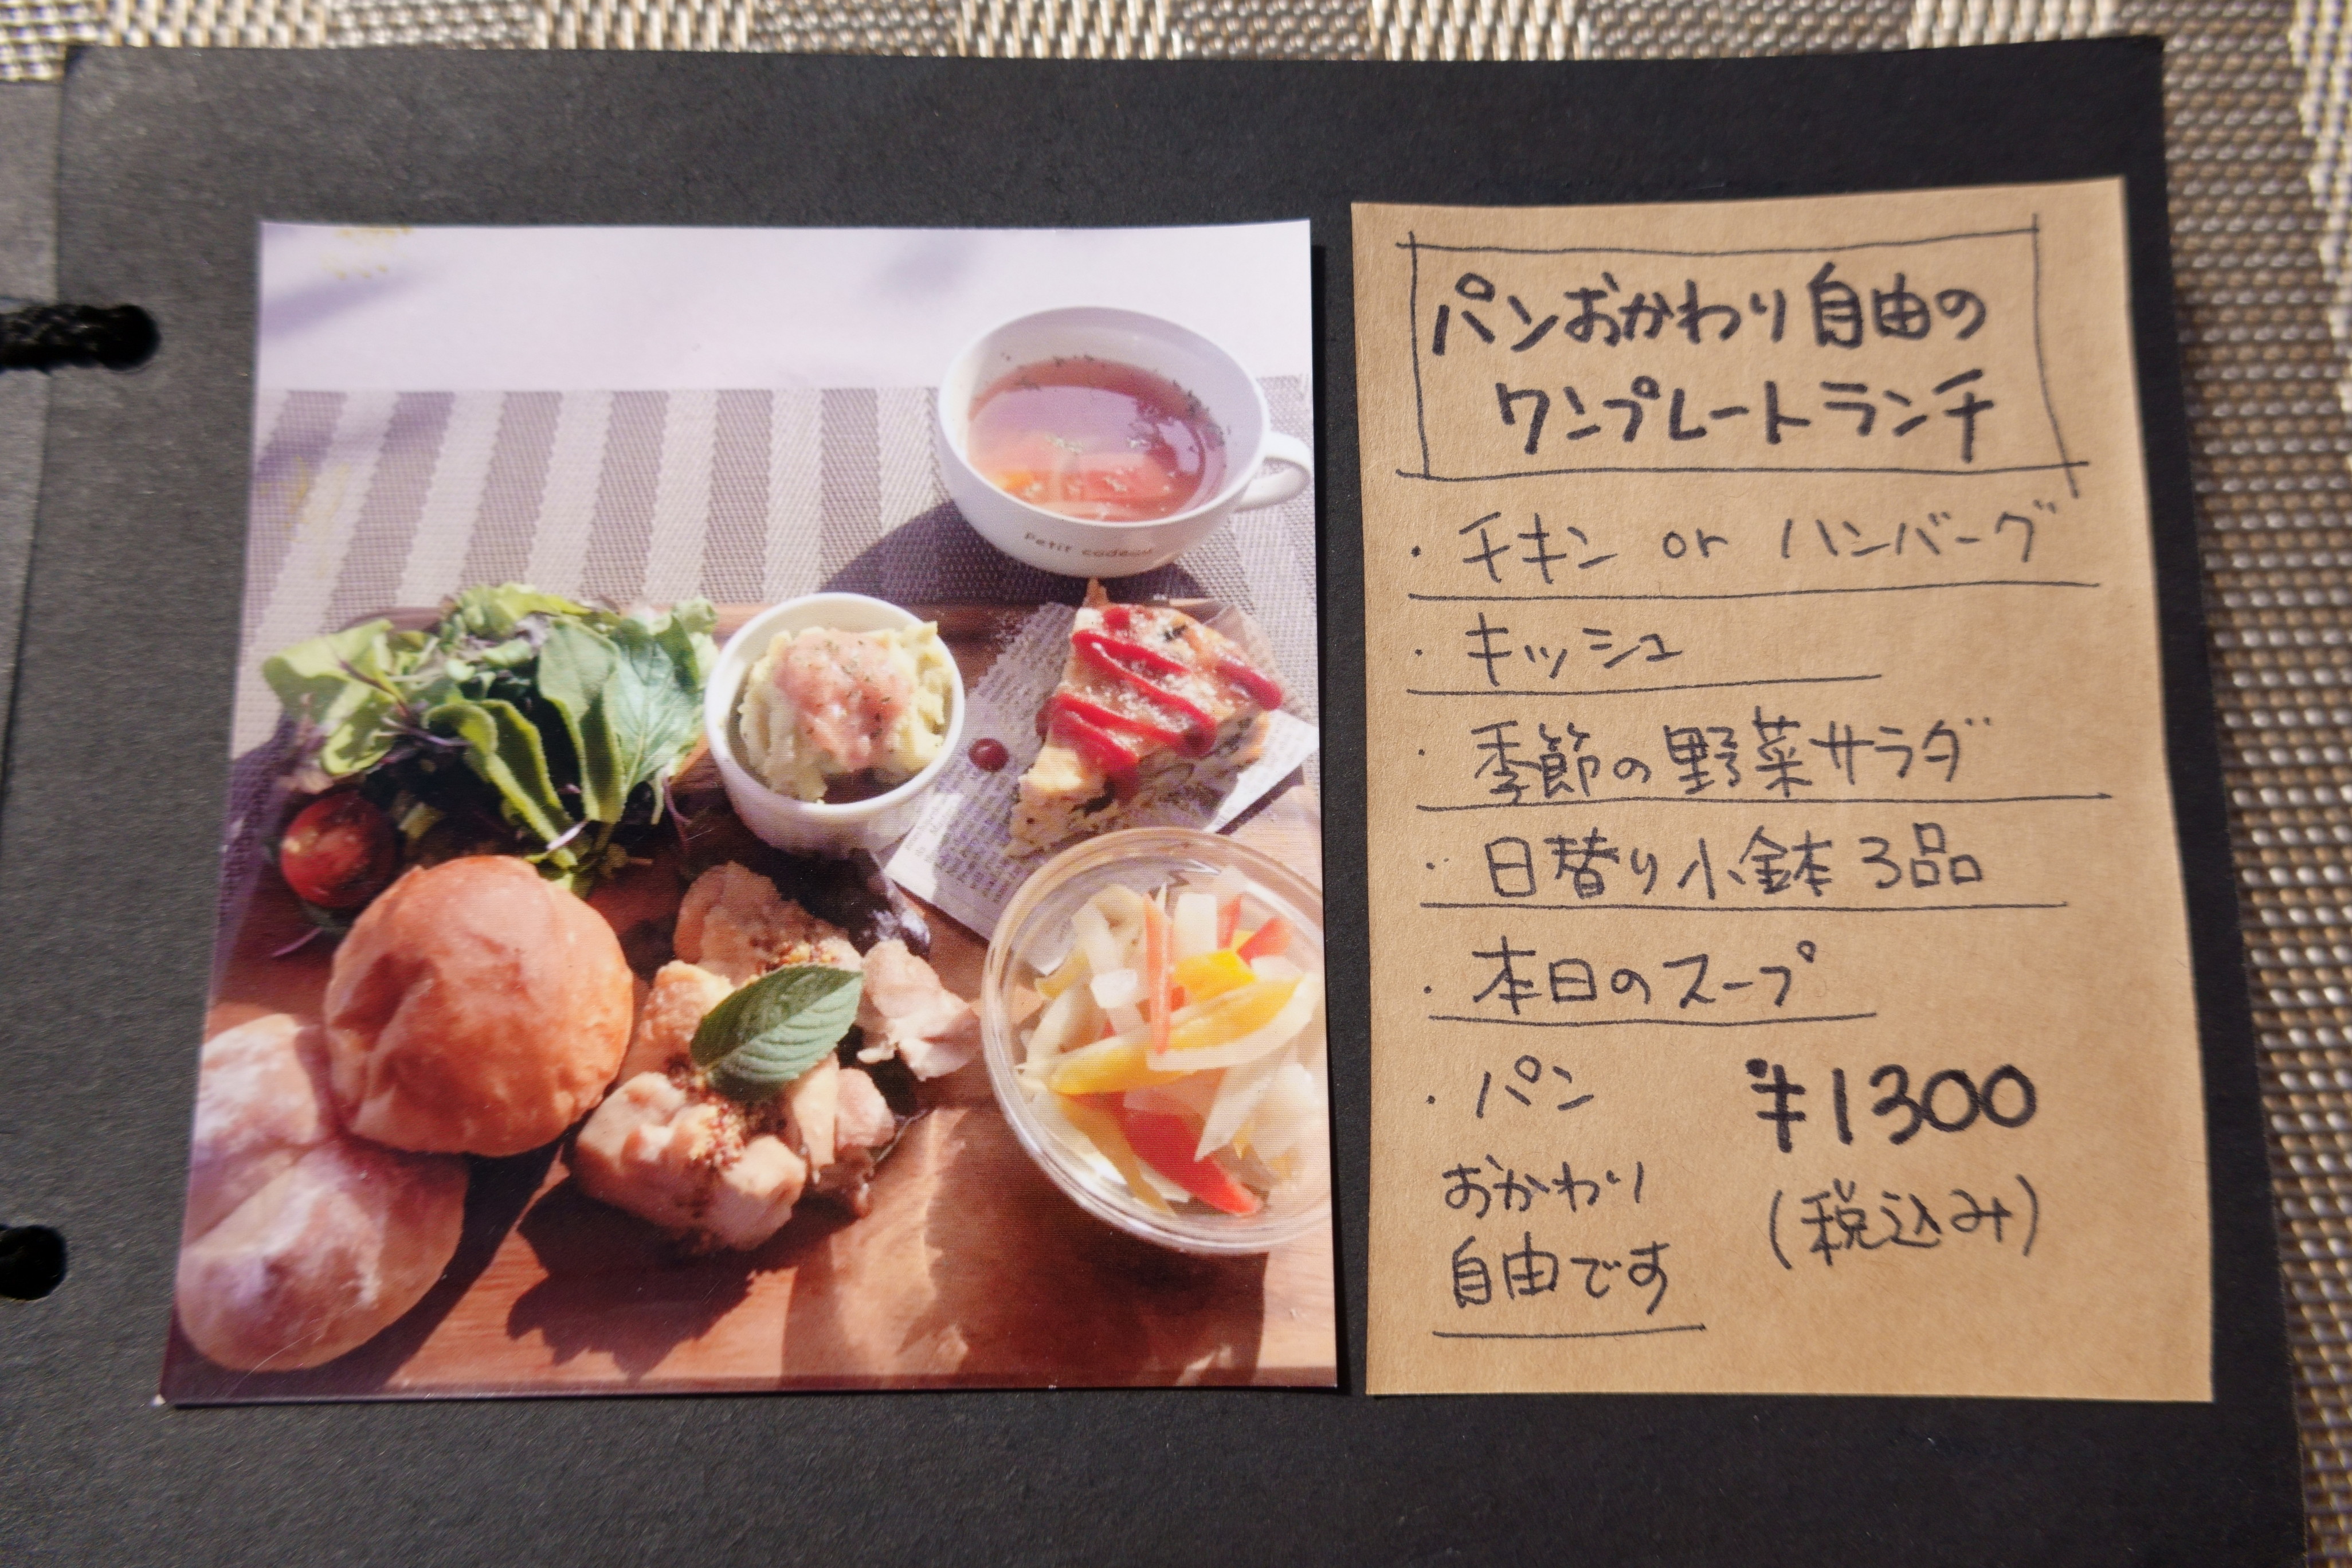 petit cadeau
パンおかわり自由の
ワンプレートランチ
・チキン or ハンバーグ
・キッシュ
・季節の野菜サラダ
・日替り小鉢3品
・本日のスープ
・パン
おかわり
自由です
¥1300
(税込み)